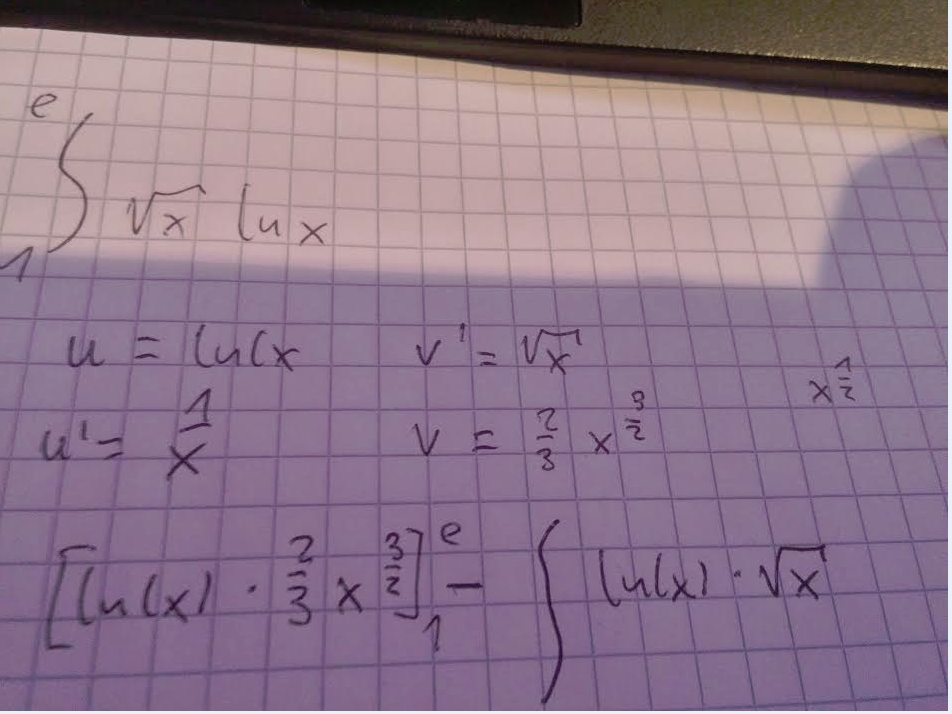 ∫₁ᵉ √x ln x
u = ln(x v' = √x
x^(1/2)
u' = 1/x v = 2/3 x^(3/2)
[ln(x) · 2/3 x^(3/2)]₁ᵉ − ∫ ln(x) · √x